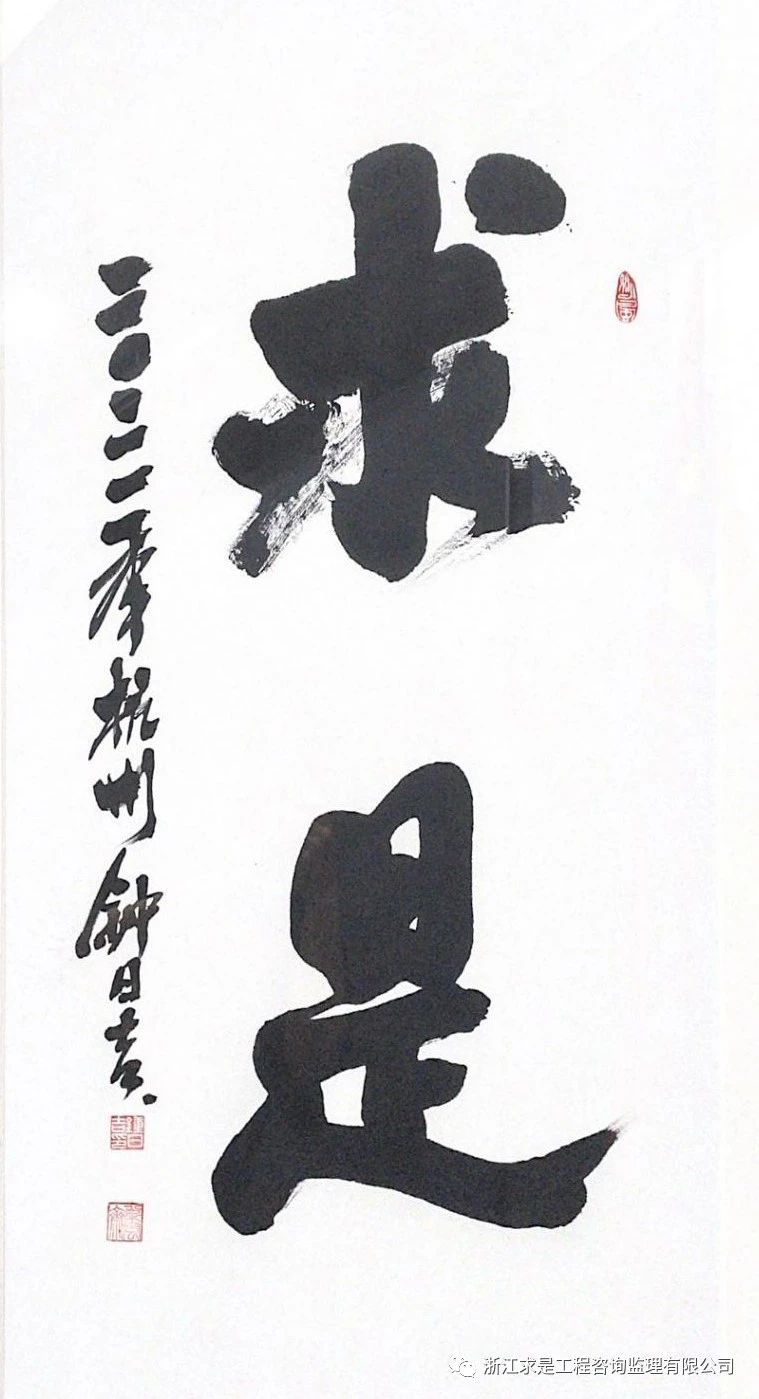 求是
二〇二二年杭州鈡日吉
鍾日吉印
浙江求是工程咨询监理有限公司